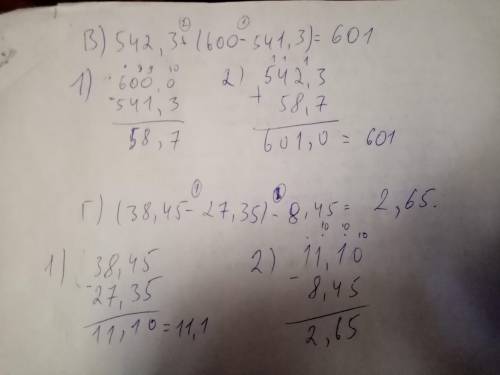 В) 542,3+(600-541,3)=601
1) 600,0 2) 542,3
- 541,3 + 58,7
58,7 601,0 = 601
Г) (38,45-27,35)-8,45= 2,65.
1) 38,45 2) 11,10
- 27,35 - 8,45
11,10=11,1 2,65